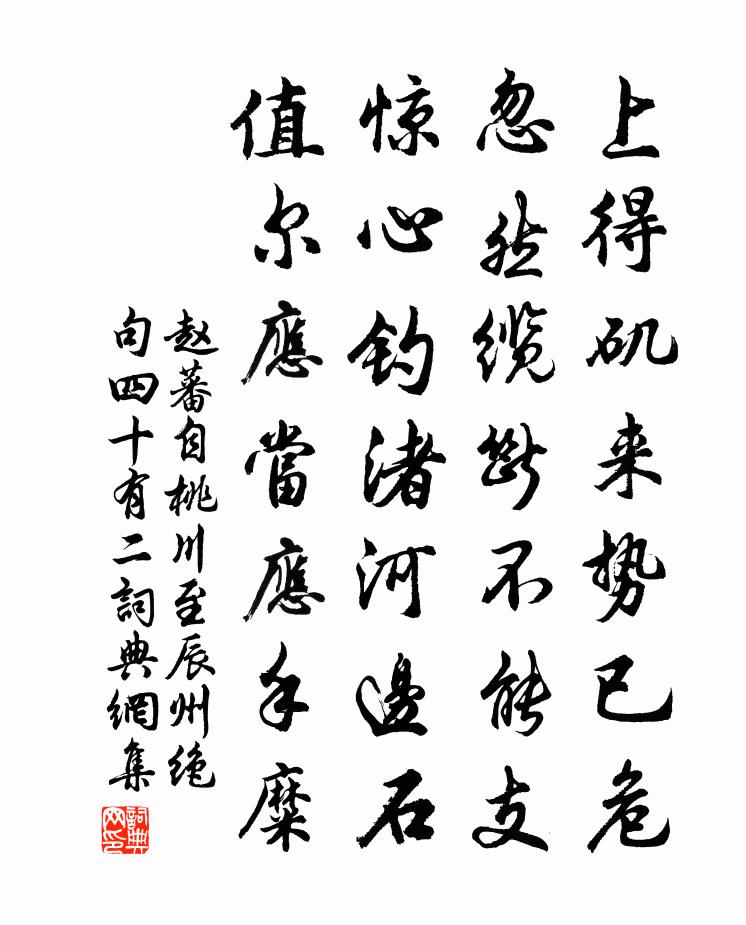 上得矶来势已危
忽然缆断不能支
惊心钓渚河邊石
值尔應當應手糜
赵蕃自桃川至辰州绝
句四十有二詞典網集
詞典網印